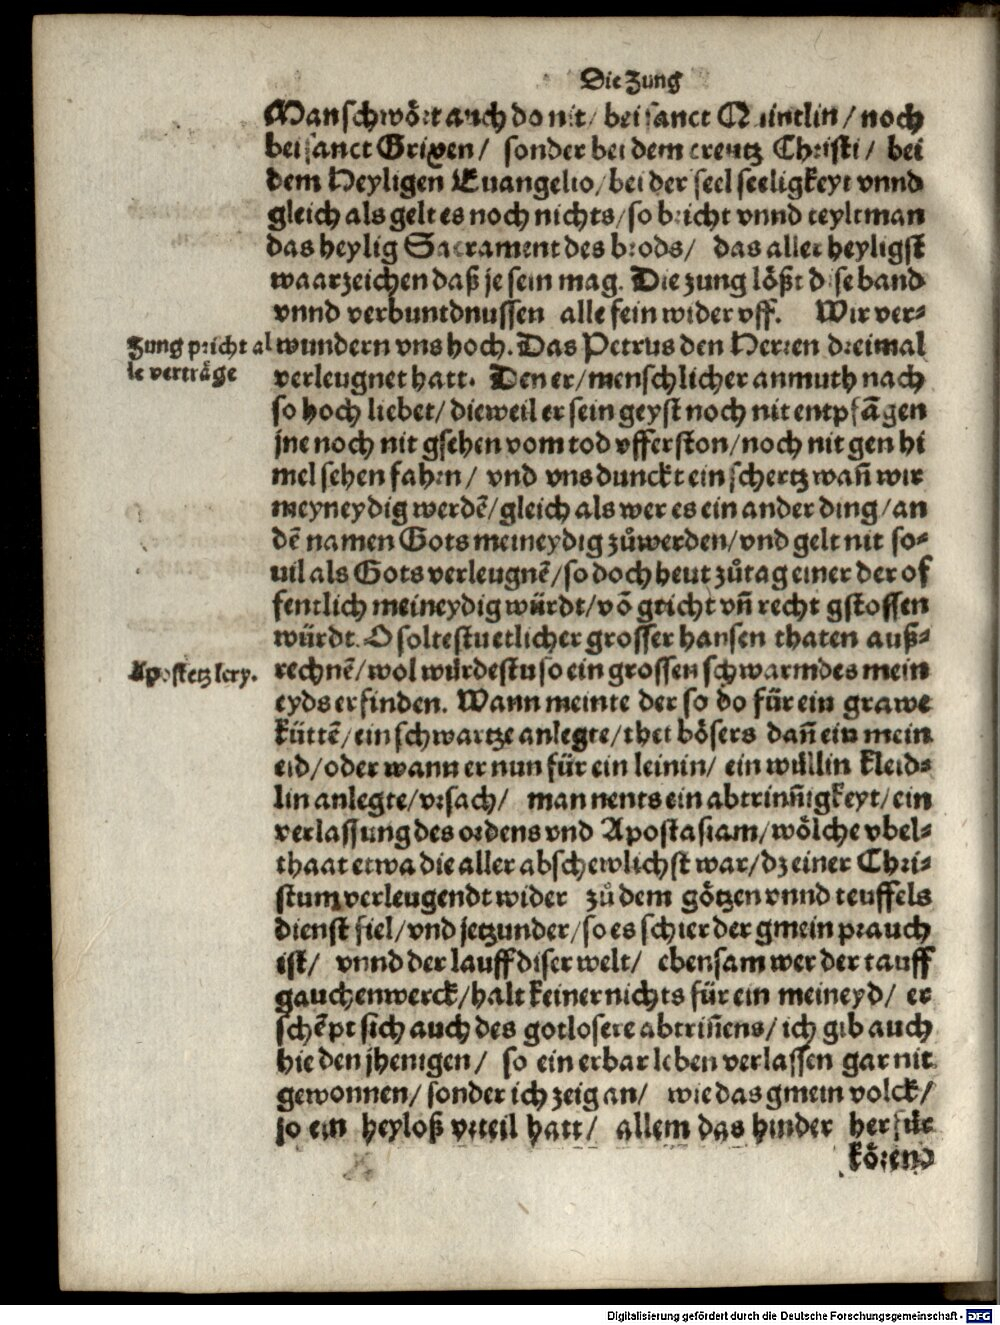 Die Zung
Man schwört auch do nit/ bei sanct Quintlin/ noch
bei sanct Grixen/ sonder bei dem creutz Christi/ bei
dem Heyligen Euangelio/ bei der seel seeligkeyt vnnd
gleich als gelt es noch nichts/ so bricht vnnd teylt man
das heylig Sacrament des brods/ das aller heyligst
waarzeichen daß je sein mag. Die zung lößt dise band
vnnd verbuntdnussen alle fein wider vff. Wir ver-
Zung pricht al
le verträge
wundern vns hoch. Das Petrus den Herren dreimal
verleugnet hatt. Den er/ menschlicher anmuth nach
so hoch liebet/ dieweil er sein geyst noch nit entpfāgen
jne noch nit gsehen vom tod vfferston/ noch nit gen hi
mel sehen fahrn/ vnd vns dunckt ein schertz wañ wir
meyneydig werdē/ gleich als wer es ein ander ding/ an
dē namen Gots meineydig zůwerden/ vnd gelt nit so-
uil als Gots verleugnē/ so doch heut zůtag einer der of
fentlich meineydig würdt/ vō gricht vñ recht gstossen
würdt. O soltestu etlicher grosser hansen thaten auß-
Apostetzlery.
rechnē/ wol würdestu so ein grossen schwarm des mein
eyds erfinden. Wann meinte der so do für ein grawe
küttē/ ein schwartze anlegte/ thet bösers dañ ein mein
eid/ oder wann er nun für ein leinin/ ein wüllin kleid-
lin anlegte/ vrsach/ man nents ein abtriñigkeyt/ ein
verlassung des ordens vnd Apostasiam/ wölche vbel-
thaat etwa die aller abschewlichst war/ dz einer Chri-
stum verleugendt wider zů dem götzen vnnd teuffels
dienst fiel/ vnd jetzunder/ so es schier der gmein prauch
ist/ vnnd der lauff diser welt/ eben sam wer der tauff
gauchenwerck/ halt keiner nichts für ein meineyd/ er
schēpt sich auch des gotlosere abtriñens/ ich gib auch
hie den jhenigen/ so ein erbar leben verlassen gar nit
gewonnen/ sonder ich zeig an/ wie das gmein volck/
so ein heyloß vrteil hatt/ allem das hinder herfür
körend
Digitalisierung gefördert durch die Deutsche Forschungsgemeinschaft - DFG